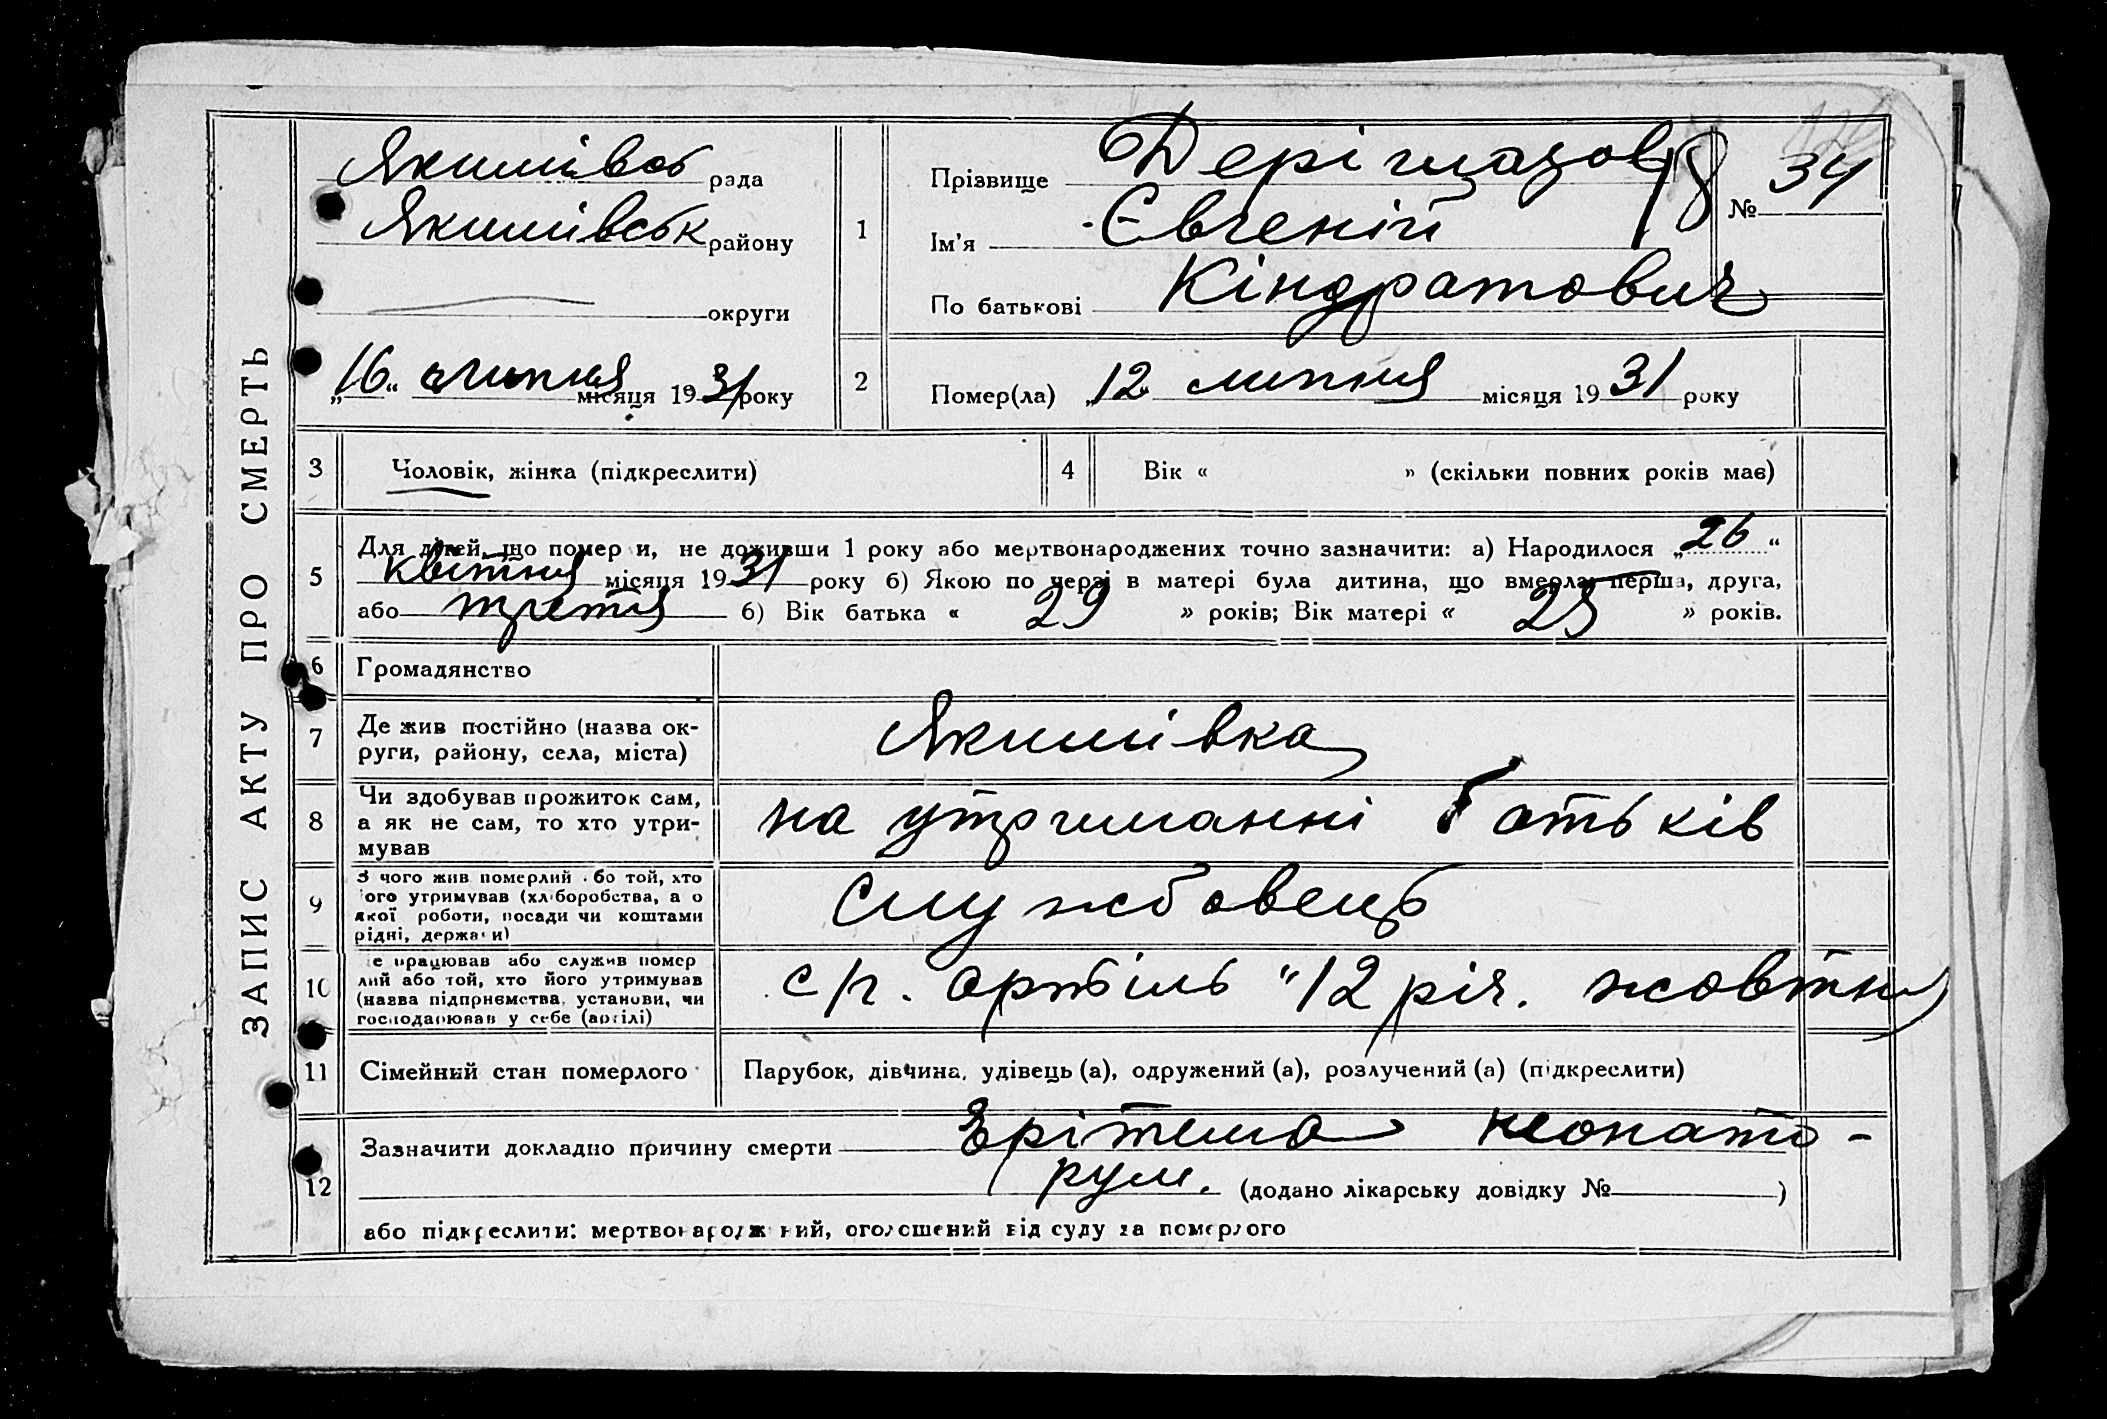 ЗАПИС АКТУ ПРО СМЕРТЬ
Якимівсь рада
Якимівськ району
округи
„16“ липня місяця 1931 року
1
Прізвище Деріглазов
Ім'я Євгеній
По батькові Кіндратович
18
№ 34
2
Помер(ла) „12 липня місяця 1931 року
3 Чоловік, жінка (підкреслити)
4 Вік « » (скільки повних років має)
5
Для дітей, що померли, не доживши 1 року або мертвонароджених точно зазначити: а) Народилося „26“
квітня місяця 1931 року б) Якою по черзі в матері була дитина, що вмерла: перша, друга,
або третя б) Вік батька « 29 » років; Вік матері « 25 » років.
6 Громадянство
7
Де жив постійно (назва ок-
руги, району, села, міста)
Якимівка
8
Чи здобував прожиток сам,
а як не сам, то хто утри-
мував
на утриманні батьків
9
З чого жив померлий або той, хто
його утримував (хліборобства, а о
якої роботи, посади чи коштами
рідні, держави)
службовець
10
Де працював або служив помер
лий або той, хто його утримував
(назва підприємства, установи, чи
господарював у себе (артілі)
с/г. артіль "12 річ. жовтня
11 Сімейний стан померлого
Парубок, дівчина, удівець (а), одружений (а), розлучений (а) (підкреслити)
12
Зазначити докладно причину смерти Ерітема неонато-
рум. (додано лікарську довідку № )
або підкреслити: мертвонароджений, оголошений від суду за померлого